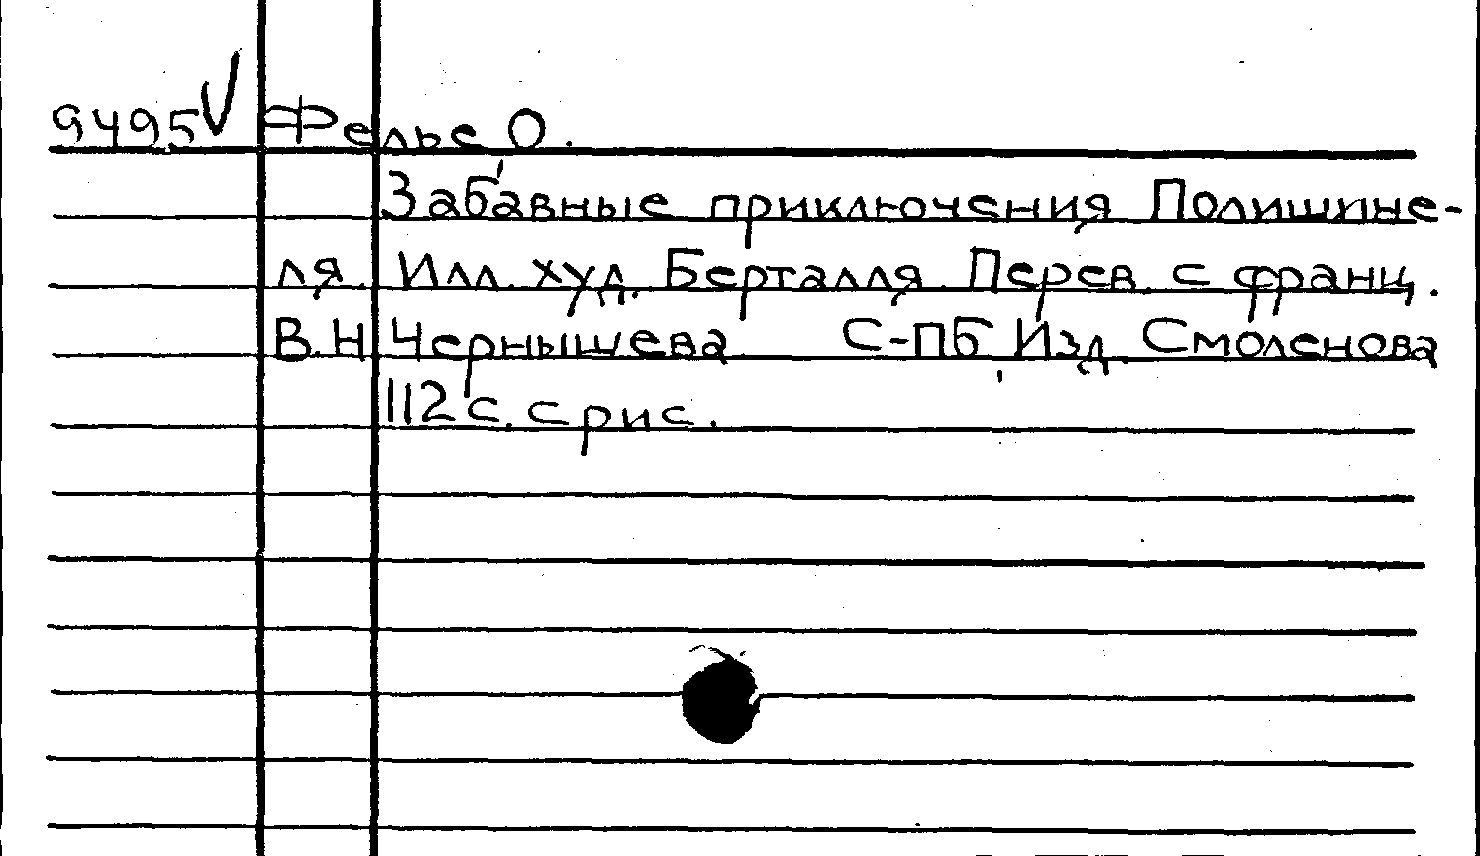 9495 V Фелье О.
Забавные приключения Полишине-
ля. Илл. худ. Берталля. Перев. с франц.
В.Н Чернышева С-ПБ, Изд. Смоленова
112 с. с рис.